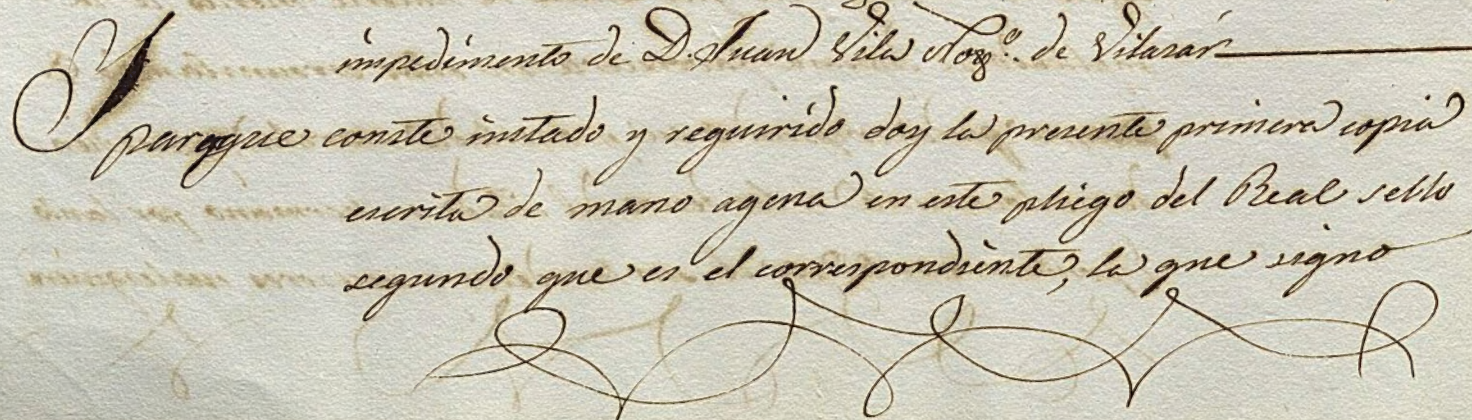 impedimento de D. Juan Vila Not.º de Vilasár
Y paraque conste instado y requirido doy la presente primera copia
escrita de mano agena en este pliego del Real sello
segundo que es el correspondiente, la que signo